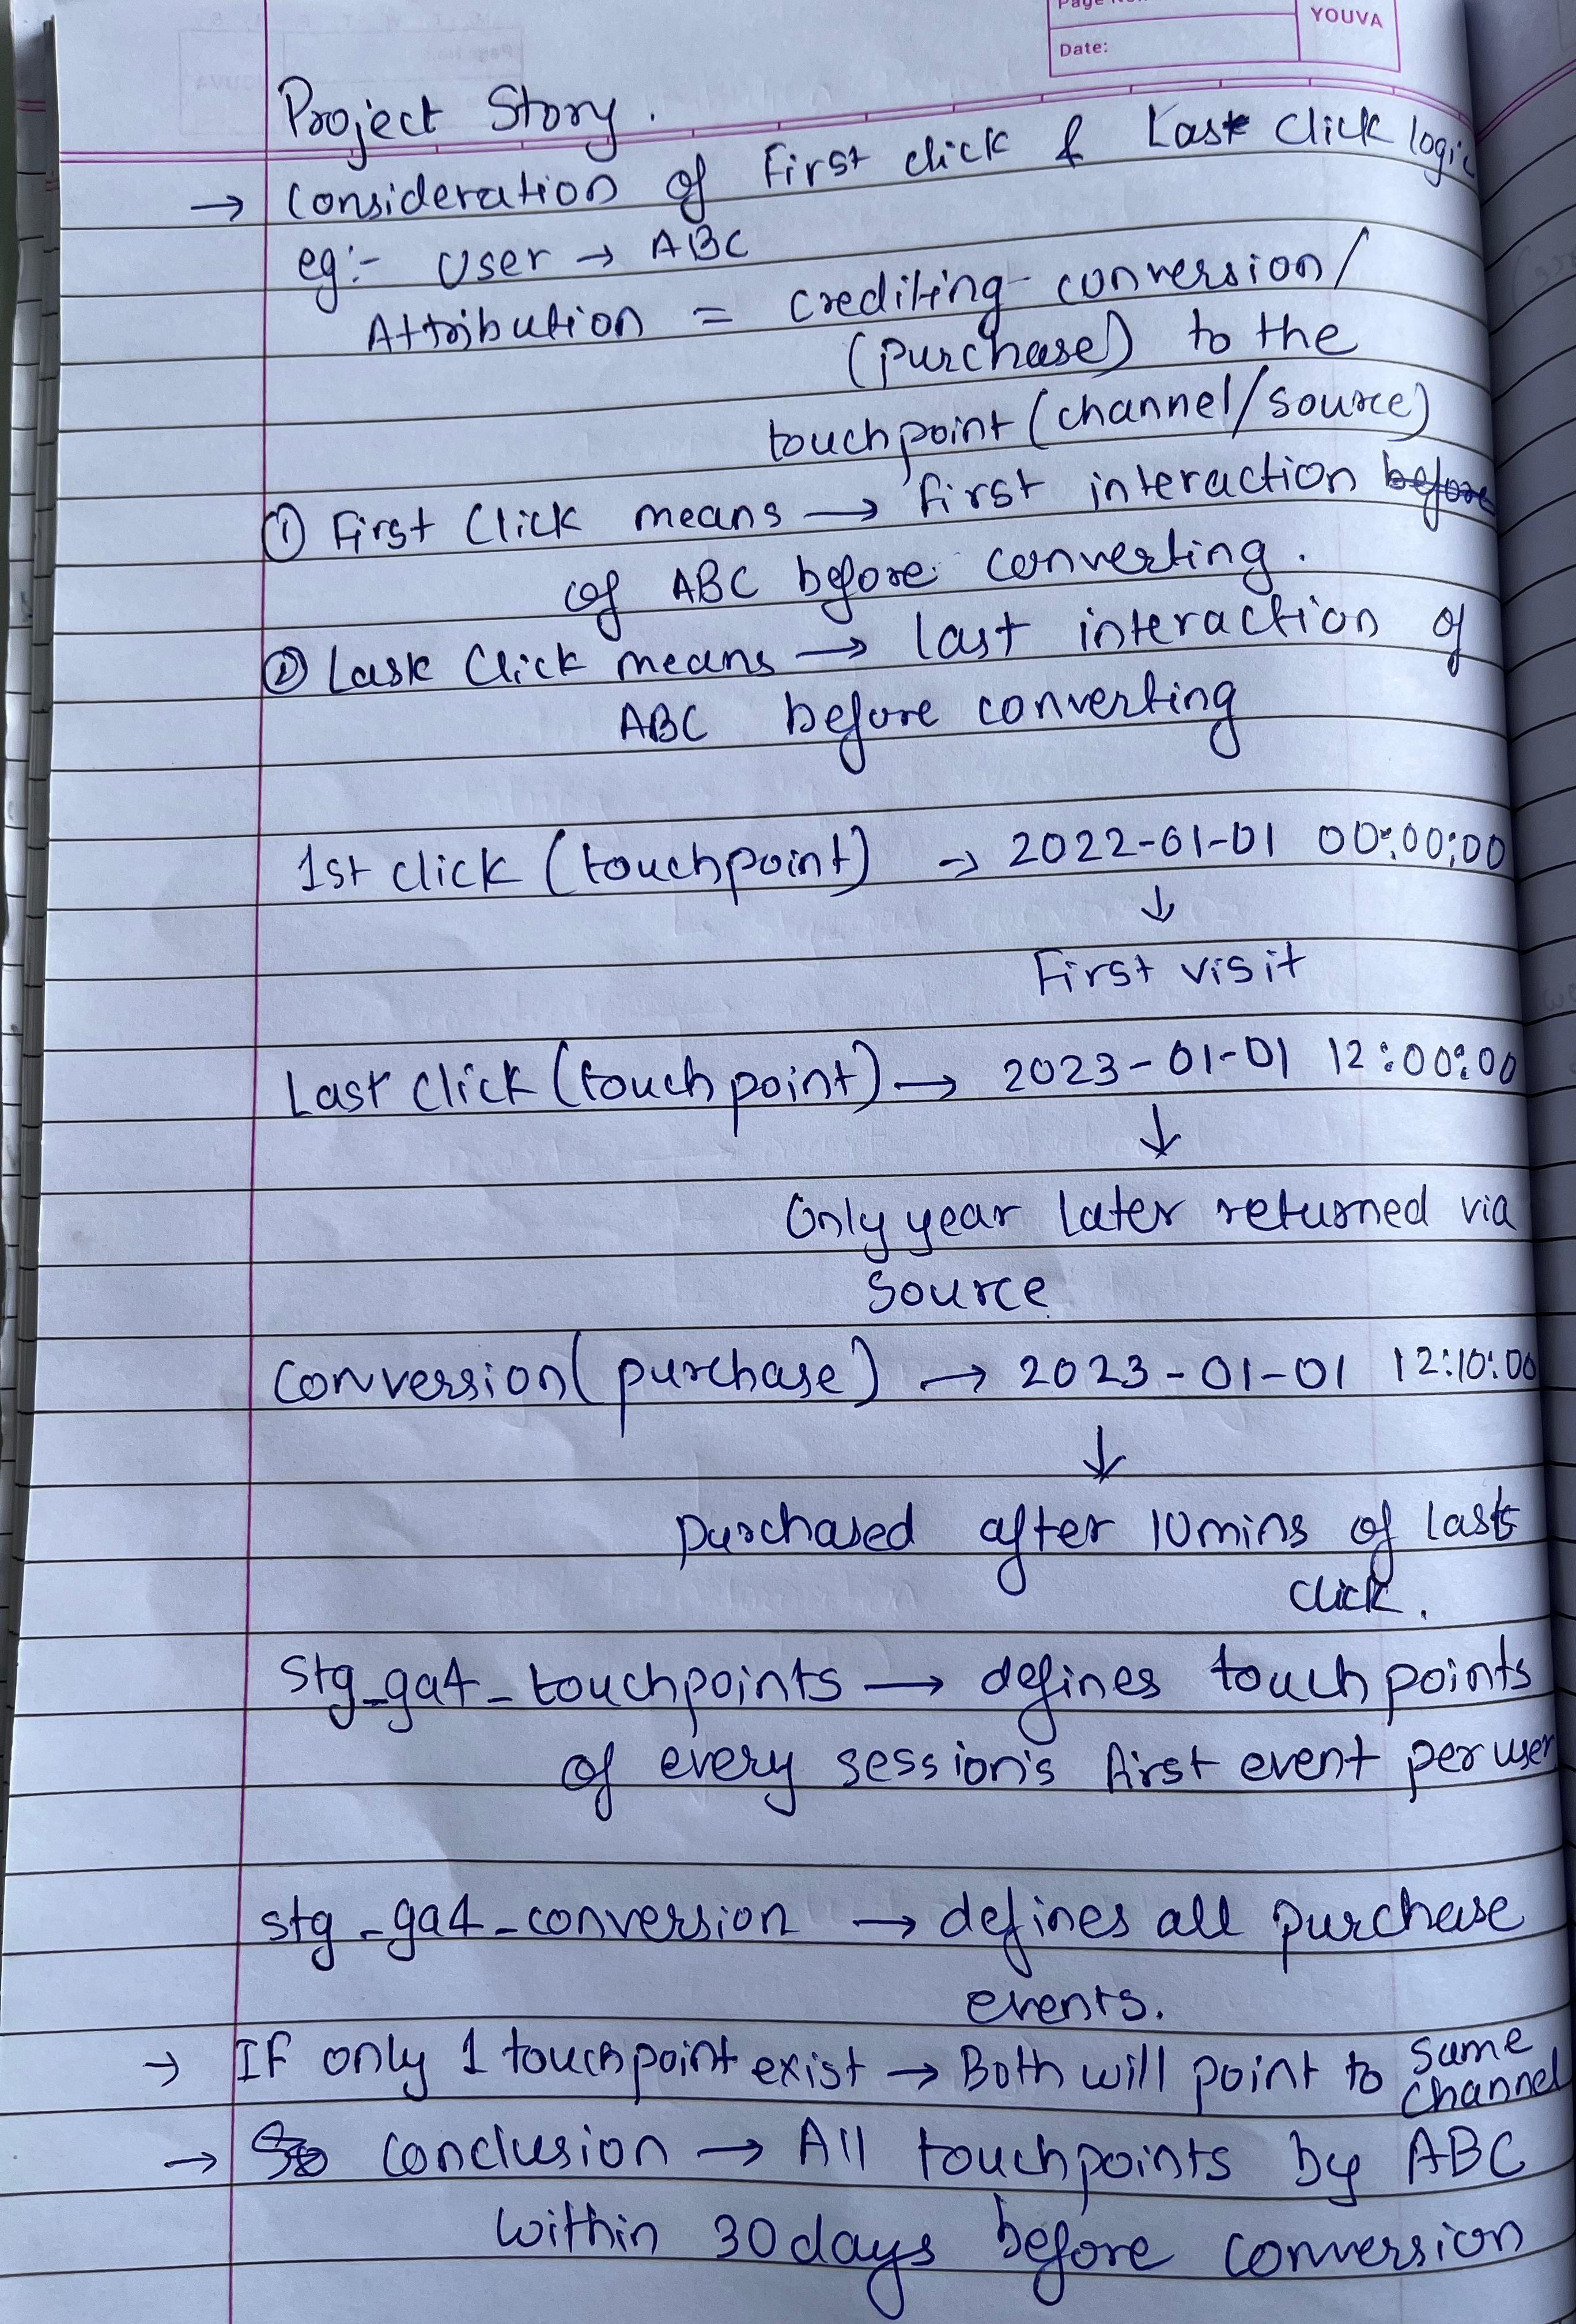 Page No.
YOUVA
Date:
Project Story.
→ Consideration of First click & Last Click logic
eg:- User → ABC
Attribution = Crediting conversion/
(purchase) to the
touchpoint (channel/source)
① First Click means → first interaction before
of ABC before converting.
② Last Click means → last interaction of
ABC before converting
1st click (touchpoint) → 2022-01-01 00:00:00
↓
First visit
Last Click (touchpoint) → 2023-01-01 12:00:00
↓
Only year later returned via
Source
Conversion (purchase) → 2023-01-01 12:10:00
↓
purchased after 10mins of last
click.
Stg_ga4_touchpoints → defines touchpoints
of every session's first event per user
stg_ga4_conversion → defines all purchase
events.
→ If only 1 touchpoint exist → Both will point to same
channel
→ So Conclusion → All touchpoints by ABC
within 30 days before conversion